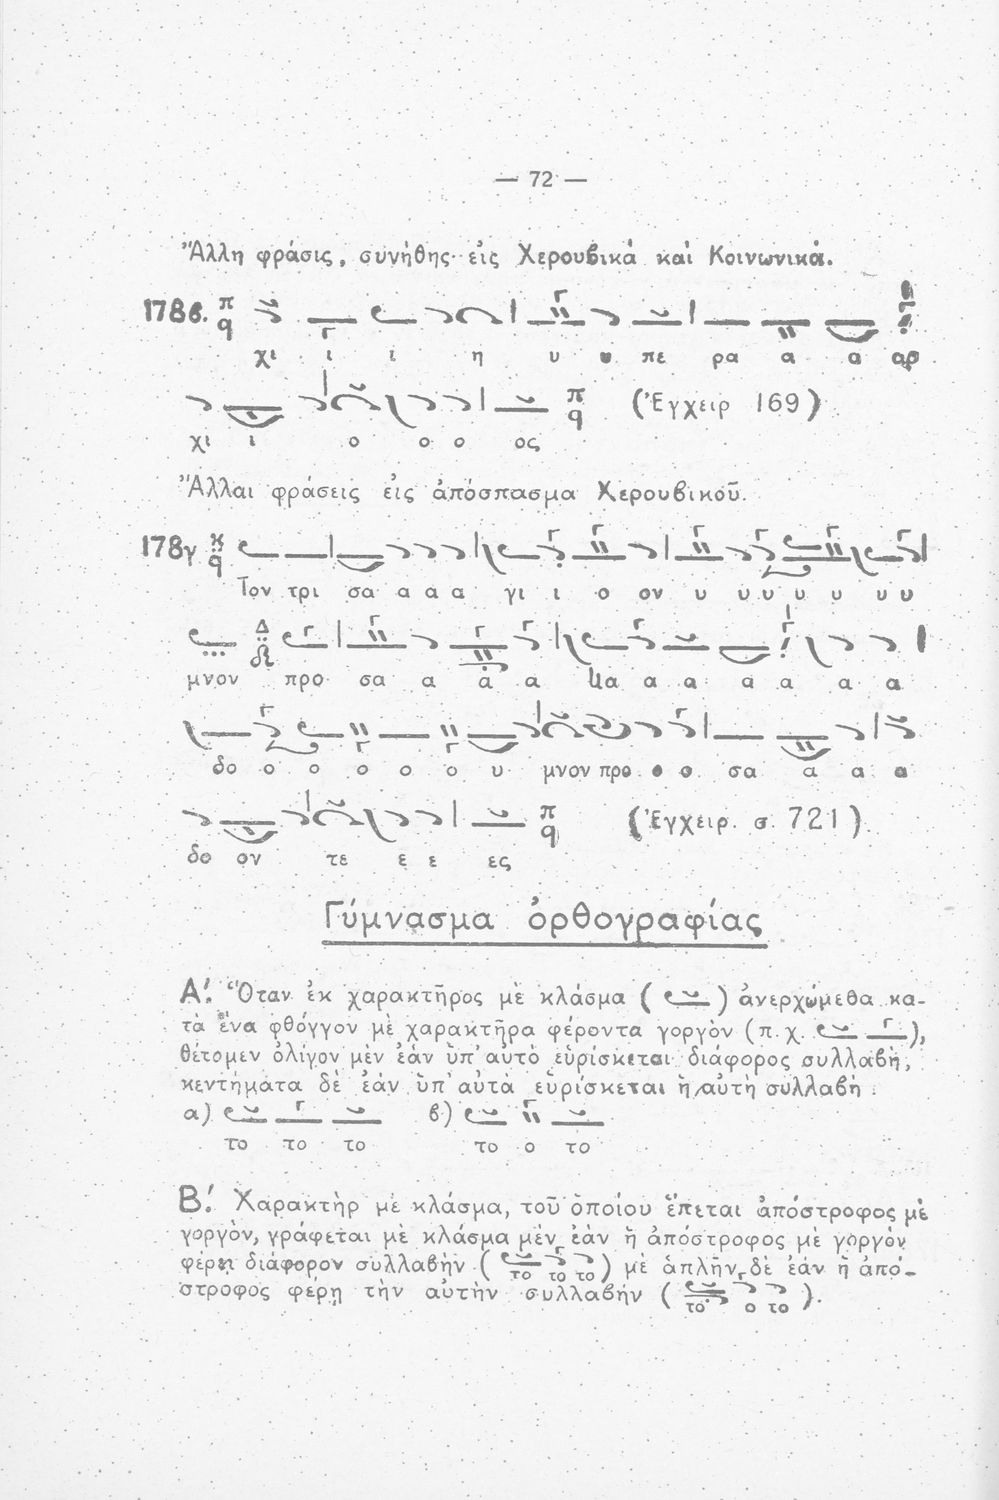 — 72 —
Ἄλλη φράσις, συνήθης εἰς Χερουβικά καί Κοινωνικά.
178β. π q
χι ι ι η υ υ πε ρα α α αρ
π q (Ἐγχειρ 169)
χι ι ο ο ο ος
Ἄλλαι φράσεις εἰς ἀπόσπασμα Χερουβικοῦ.
178γ κ q
Τον τρι σα α α α γι ι ο ον υ υ υ υ υ υ υ
Δ
μνον προ σα α α α α α α α α α
δο ο ο ο ο ο υ μνον προ ο ο σα α α α
π q (Ἐγχειρ. σ. 721)
δο ον τε ε ε ες
Γύμνασμα ὀρθογραφίας
Α΄. Ὅταν ἐκ χαρακτῆρος μὲ κλάσμα ( ) ἀνερχώμεθα κα-
τὰ ἕνα φθόγγον μὲ χαρακτῆρα φέροντα γοργὸν (π.χ. ),
θέτομεν ὀλίγον μὲν ἐὰν ὑπ' αὐτὸ εὑρίσκεται διάφορος συλλαβὴ,
κεντήματα δὲ ἐὰν ὑπ' αὐτὰ εὑρίσκεται ἡ αὐτὴ συλλαβὴ :
α) β)
το το το το ο το
Β΄. Χαρακτὴρ μὲ κλάσμα, τοῦ ὁποίου ἕπεται ἀπόστροφος μὲ
γοργὸν, γράφεται μὲ κλάσμα μὲν ἐὰν ἡ ἀπόστροφος μὲ γοργὸν
φέρει διάφορον συλλαβὴν ( το το το ) μὲ ἁπλῆν δὲ ἐὰν ἡ ἀπό-
στροφος φέρῃ τὴν αὐτὴν συλλαβὴν ( το ο το ).